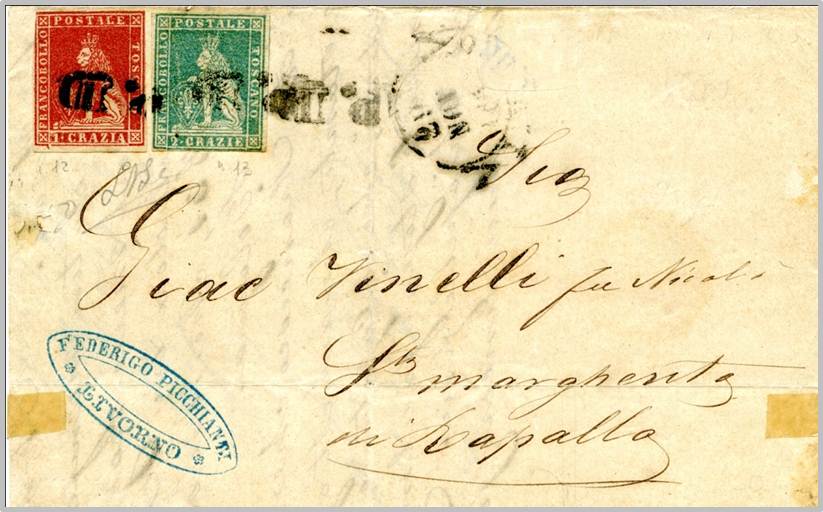 FRANCOBOLLO POSTALE TOSCANO
1. CRAZIA
FRANCOBOLLO POSTALE TOSCANO
2. CRAZIE
P. D.
P. D.
12
12
Sig
Giac Vinelli fu Nicolò
Sta margherita
di Rapallo
FEDERIGO PICCHIANTI
LIVORNO